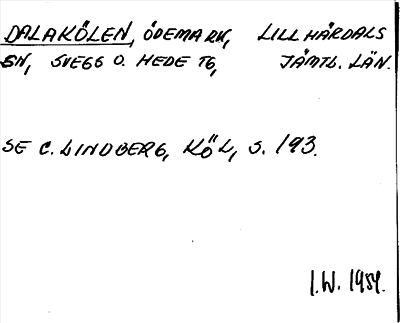 DALAKÖLEN, ÖDEMARK, LILLHÄRDALS
SN, SVEGS O. HEDE TG, JÄMTL. LÄN.
SE C. LINDBERG, KÖL, S. 193.
I.W. 1954.